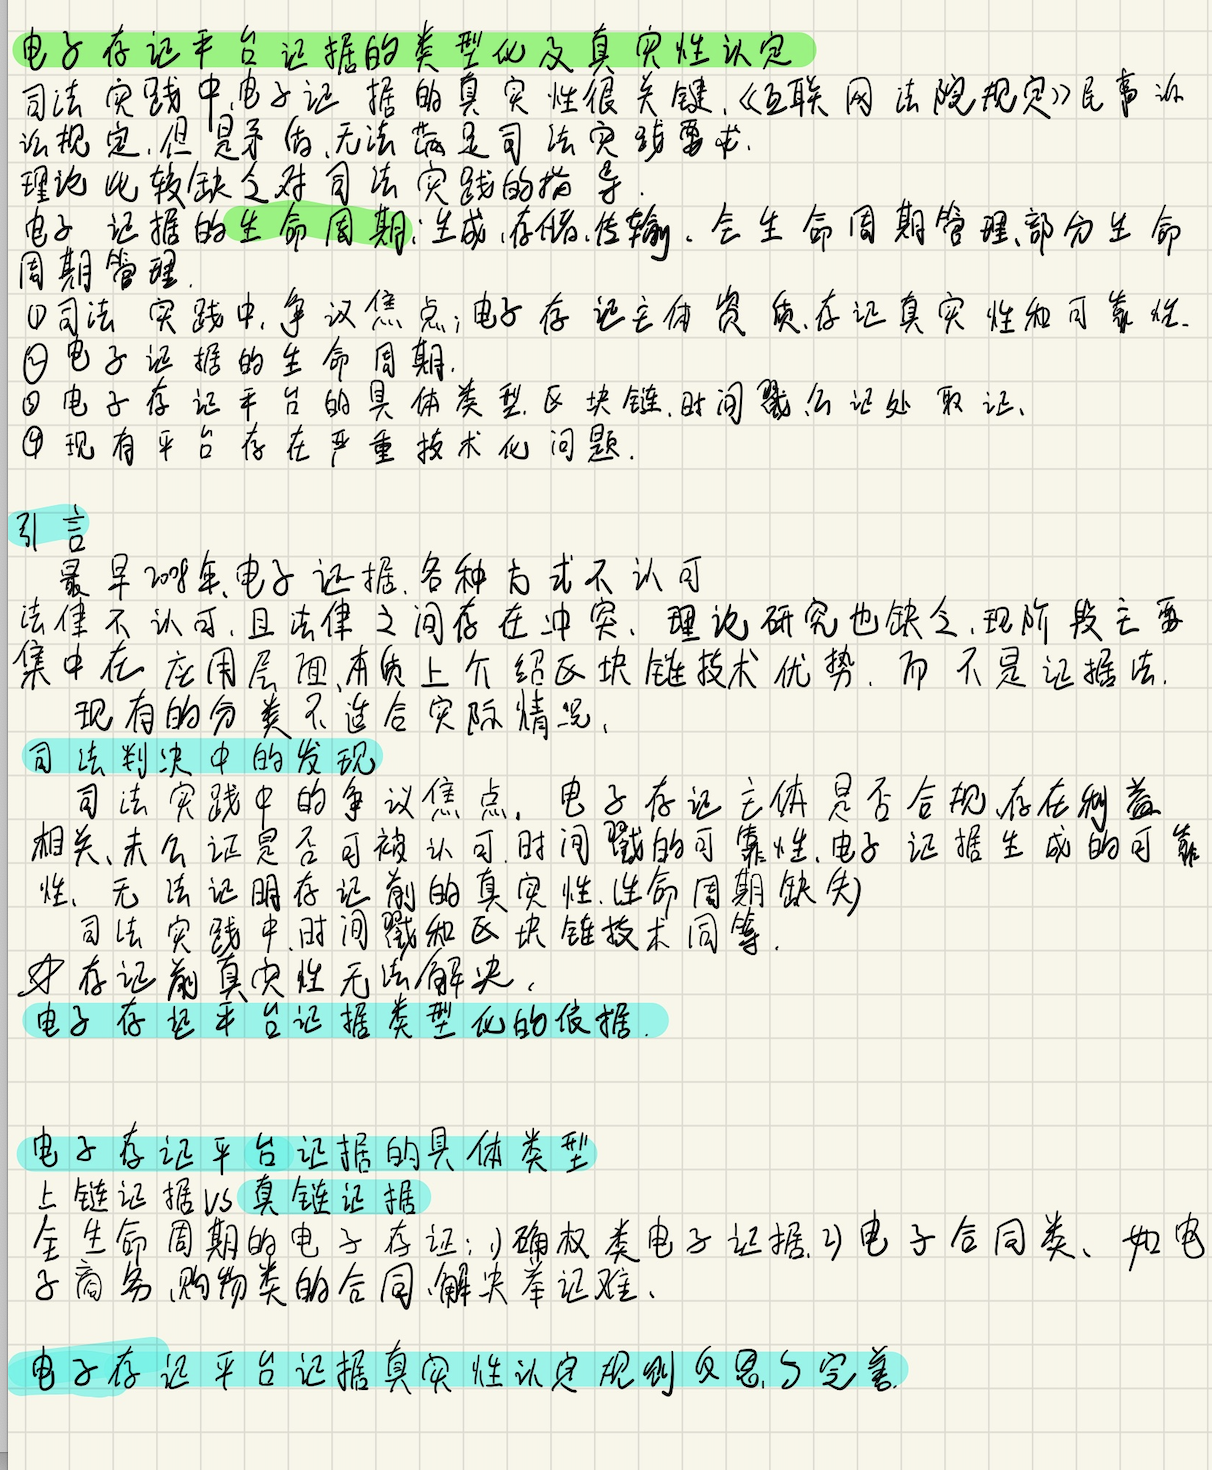 电子存证平台证据的类型化及真实性认定
司法实践中,电子证据的真实性很关键,《互联网法院规定》民事诉
讼规定,但是矛盾,无法满足司法实践要求.
理论比较缺乏对司法实践的指导.
电子证据的生命周期:生成,存储,传输.全生命周期管理,部分生命
周期管理.
①司法实践中,争议焦点:电子存证主体资质,存证真实性和可靠性.
② 电子证据的生命周期.
③ 电子存证平台的具体类型.区块链,时间戳,公证处取证、
④ 现有平台存在严重技术化问题.
引言
最早2008年,电子证据,各种方式不认可
法律不认可,且法律之间存在冲突、理论研究也缺乏,现阶段主要
集中在应用层面,本质上介绍区块链技术优势,而不是证据法.
现有的分类不适合实际情况,
司法判决中的发现
司法实践中的争议焦点,电子存证主体是否合规,存在利益
相关、未公证是否可被认可,时间戳的可靠性,电子证据生成的可靠
性、无法证明存证前的真实性,(生命周期缺失)
司法实践中,时间戳和区块链技术同等.
☆存证前真实性无法解决,
电子存证平台证据类型化的依据.
电子存证平台证据的具体类型
上链证据VS真链证据
全生命周期的电子存证:1)确权类电子证据,2)电子合同类、如电
子商务,购物类的合同,解决举证难、
电子存证平台证据真实性认定规则反思与完善.